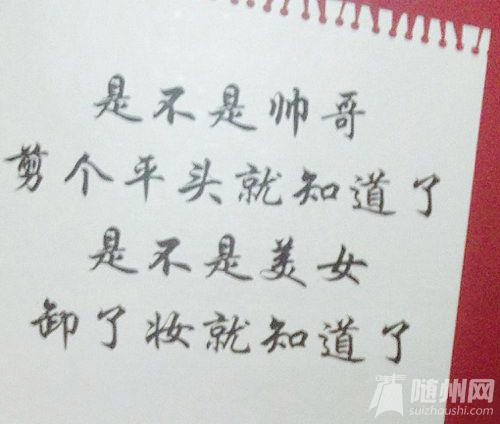 是不是帅哥
剪个平头就知道了
是不是美女
卸了妆就知道了
随州网
suizhoushi.com